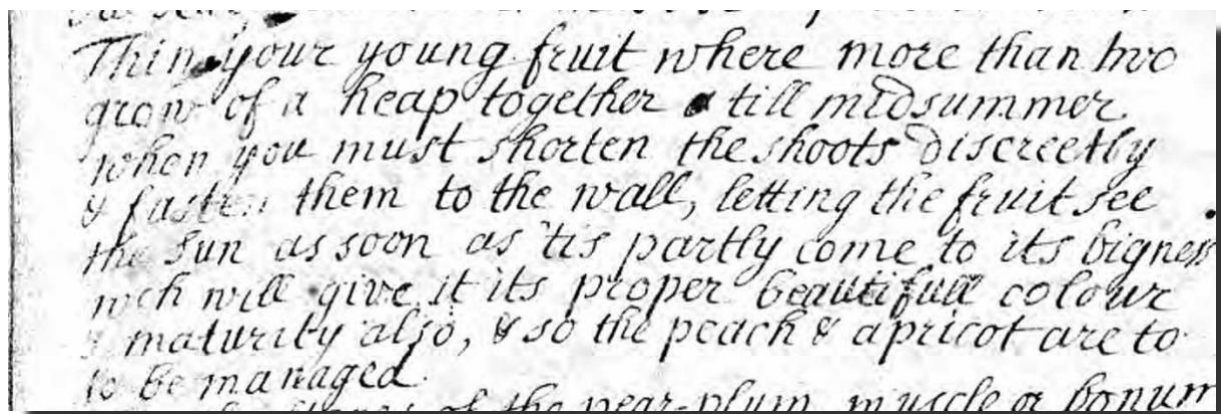 Thin your young fruit where more than two
grow of a heap together till midsummer
when you must shorten the shoots discreetly
& fasten them to the wall, letting the fruit see
the Sun as soon as 'tis partly come to its bigness
wch will give it its proper beautifull colour
& maturity also, & so the peach & apricot are to
to be managed
of the pear-plum, muscle or bonum